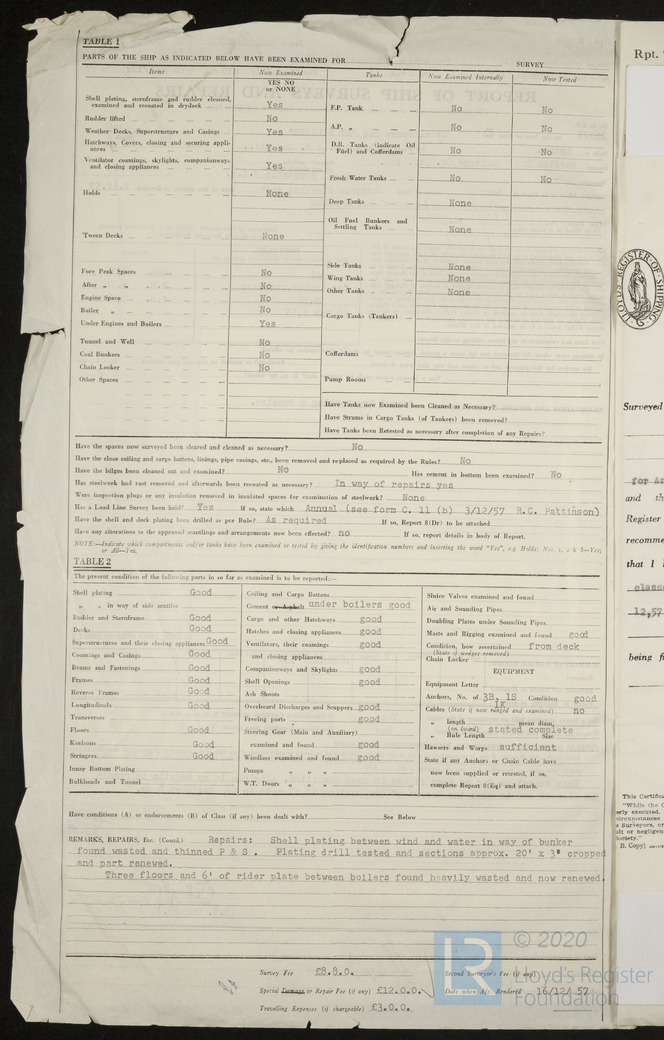 TABLE 1
PARTS OF THE SHIP AS INDICATED BELOW HAVE BEEN EXAMINED FOR SURVEY
Items Now Examined Tanks Now Examined Internally Now Tested
YES NO
or NONE
Shell plating, sternframe and rudder cleaned,
examined and recoated in drydock Yes
Rudder lifted No
Weather Decks, Superstructure and Casings Yes
Hatchways, Covers, closing and securing appli-
ances Yes
Ventilator coamings, skylights, companionways
and closing appliances Yes
Holds None
'Tween Decks None
Fore Peak Spaces No
After „ „ No
Engine Space No
Boiler „ No
Under Engines and Boilers Yes
Tunnel and Well No
Coal Bunkers No
Chain Locker No
Other Spaces
F.P. Tank No No
A.P. „ No No
D.B. Tanks (indicate Oil
Fuel) and Cofferdams No No
Fresh Water Tanks No No
Deep Tanks None
Oil Fuel Bunkers and
Settling Tanks None
Side Tanks None
Wing Tanks None
Other Tanks None
Cargo Tanks (Tankers)
Cofferdams
Pump Rooms
Have Tanks now Examined been Cleaned as Necessary?
Have Strums in Cargo Tanks (of Tankers) been removed?
Have Tanks been Retested as necessary after completion of any Repairs?
Have the spaces now surveyed been cleared and cleaned as necessary? No
Have the close ceiling and cargo battens, linings, pipe casings, etc., been removed and replaced as required by the Rules? No
Have the bilges been cleaned out and examined? No Has cement in bottom been examined? No
Has steelwork had rust removed and afterwards been recoated as necessary? In way of repairs yes
Were inspection plugs or any insulation removed in insulated spaces for examination of steelwork? None
Has a Load Line Survey been held? Yes If so, state which Annual (see form C. 11 (b) 3/12/57 R.C. Pattinson)
Have the shell and deck plating been drilled as per Rule? As required If so, Report 8(Dr) to be attached
Have any alterations to the approved scantlings and arrangements now been effected? no If so, report details in body of Report.
NOTE:—Indicate which compartments and/or tanks have been examined or tested by giving the identification numbers and inserting the word "Yes", e.g. Holds: Nos. 1, 2 & 3—Yes;
or All—Yes.
TABLE 2
The present condition of the following parts in so far as examined is to be reported:—
Shell plating Good
„ „ in way of side scuttles
Rudder and Sternframe Good
Decks Good
Superstructures and their closing appliances Good
Coamings and Casings Good
Beams and Fastenings Good
Frames Good
Reverse Frames Good
Longitudinals Good
Transverses
Floors Good
Keelsons Good
Stringers Good
Inner Bottom Plating
Bulkheads and Tunnel
Ceiling and Cargo Battens
Cement or Asphalt under boilers good
Cargo and other Hatchways good
Hatches and closing appliances good
Ventilators, their coamings good
and closing appliances
Companionways and Skylights good
Shell Openings good
Ash Shoots
Overboard Discharges and Scuppers good
Freeing ports good
Steering Gear (Main and Auxiliary)
examined and found good
Windlass examined and found good
Pumps „ „ „
W.T. Doors „ „ „
Sluice Valves examined and found
Air and Sounding Pipes
Doubling Plates under Sounding Pipes
Masts and Rigging examined and found good
Condition, how ascertained from deck
(State if wedges removed)
Chain Locker
EQUIPMENT
Equipment Letter
Anchors, No. of 3B, 1S Condition good
1K
Cables (State if now ranged and examined) no
„ length mean diam.
(on board) stated complete
„ Rule Length Size
Hawsers and Warps sufficient
State if any Anchors or Chain Cable have
now been supplied or retested, if so,
complete Report 8(Eq) and attach.
Have conditions (A) or endorsements (B) of Class (if any) been dealt with? See Below
REMARKS, REPAIRS, Etc. (Contd.) Repairs: Shell plating between wind and water in way of bunker
found wasted and thinned P & S. Plating drill tested and sections approx. 20' x 3' cropped
and part renewed.
Three floors and 6' of rider plate between boilers found heavily wasted and now renewed.
Survey Fee £8.8.0. Second Surveyor's Fee (if any)
Special Damage or Repair Fee (if any) £12.0.0. Date when A/cs. Rendered 16/12/57
Travelling Expenses (if chargeable) £3.0.0.
LR © 2020
Lloyd's Register
Foundation
Rpt.
LLOYD'S REGISTER OF SHIPPING
Surveyed
and th
Register
recomme
that I
class
12,57
being f
This Certifica
"While the C